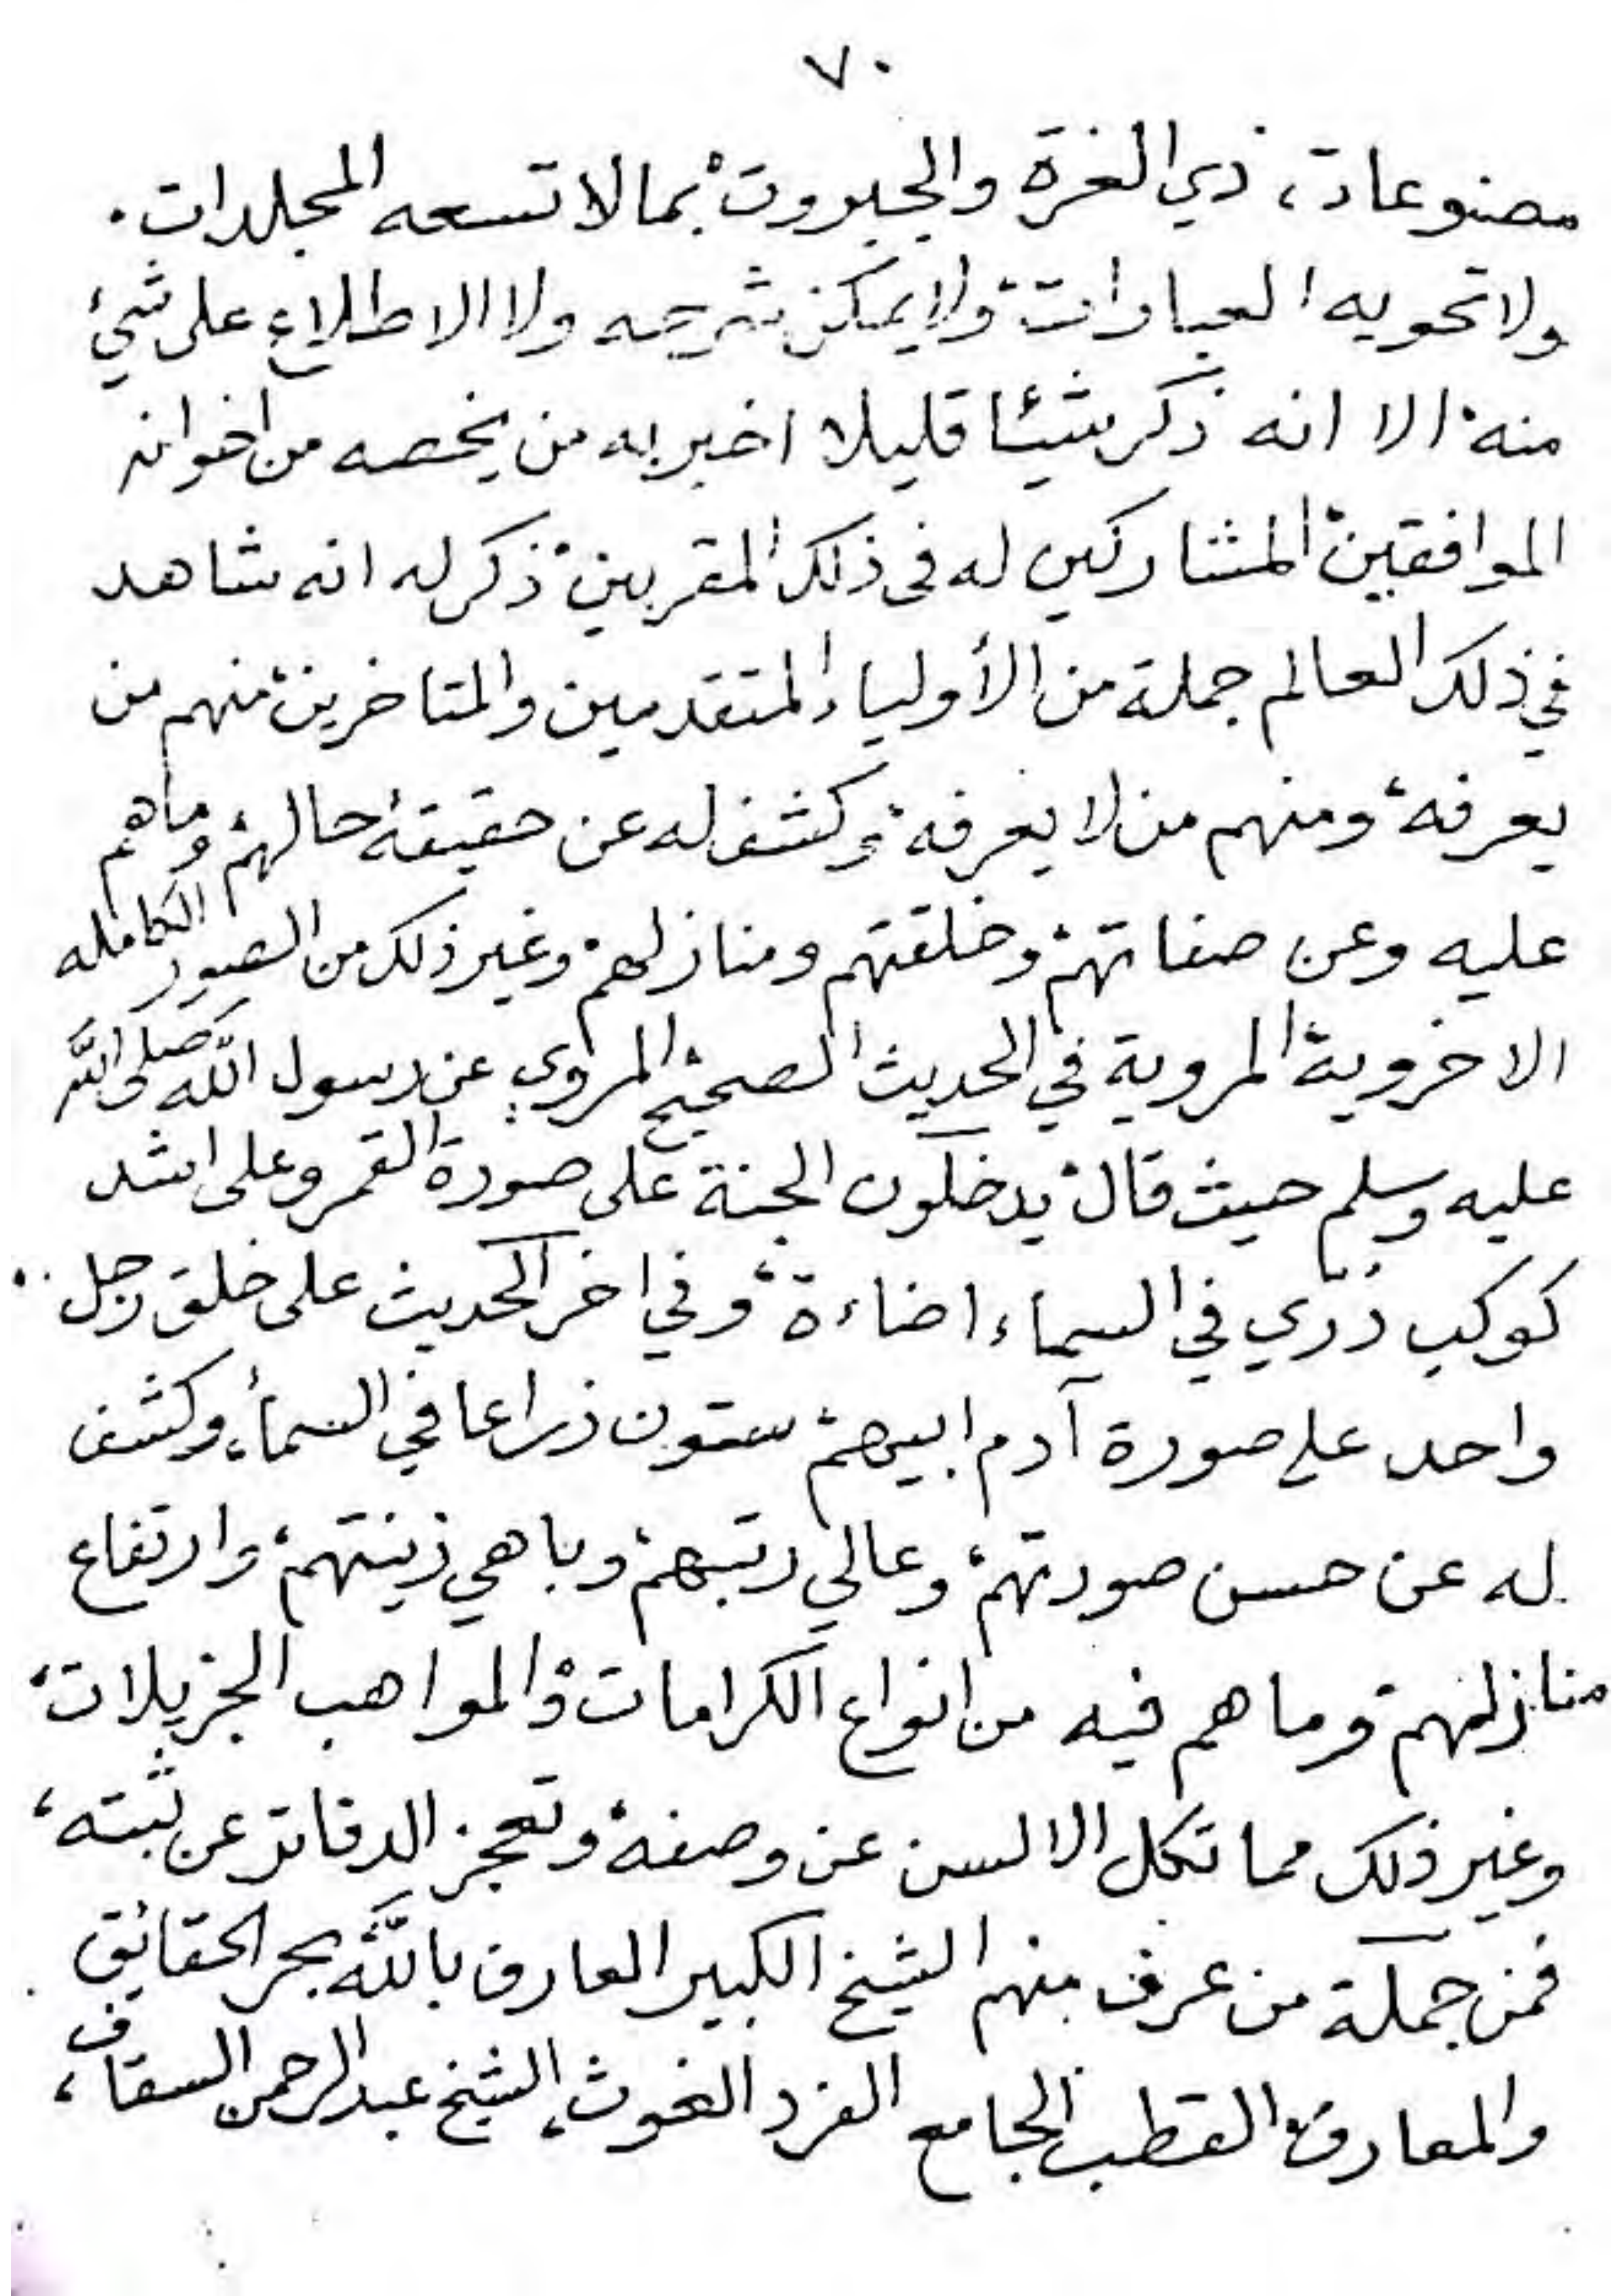 ٧٠
مصنوعات، ذي العزة والجبروت، بما لا تسعه المجلدات.
ولا تحويه العبارات، ولا يمكن شرحه ولا الاطلاع على شيء
منه، الا انه ذكر شيئا قليلا اخبر به من يخصه من اخوانه
الموافقين، المشاركين له في ذلك المقربين، ذكر له انه شاهد
في ذلك العالم جملة من الأولياء المتقدمين والمتاخرين، منهم من
يعرفه، ومنهم من لا يعرفه، وكشف له عن حقيقة حالهم، وما هم
عليه وعن صفاتهم، وخلقتهم ومنازلهم، وغير ذلك من الصور الكامله
الاخروية، المروية في الحديث الصحيح، المروي عن رسول الله صلى الله
عليه وسلم حيث قال، يدخلون الجنة على صورة القمر وعلى اشد
كوكب درّي في السماء اضاءة، وفي اخر الحديث على خلق رجل
واحد على صورة آدم ابيهم، ستون ذراعا في السماء، وكشف
له عن حسن صورتهم، وعالي رتبهم، وباهي زينتهم، وارتفاع
منازلهم، وما هم فيه من انواع الكرامات، والمواهب الجزيلات،
وغير ذلك مما تكل الالسن عن وصفه، وتعجز الدفاتر عن ثبته،
فمن جملة من عرف منهم الشيخ الكبير العارف بالله بحر الحقائق
والمعارف، القطب الجامع الفرد الغوث، الشيخ عبد الرحمن السقاف،